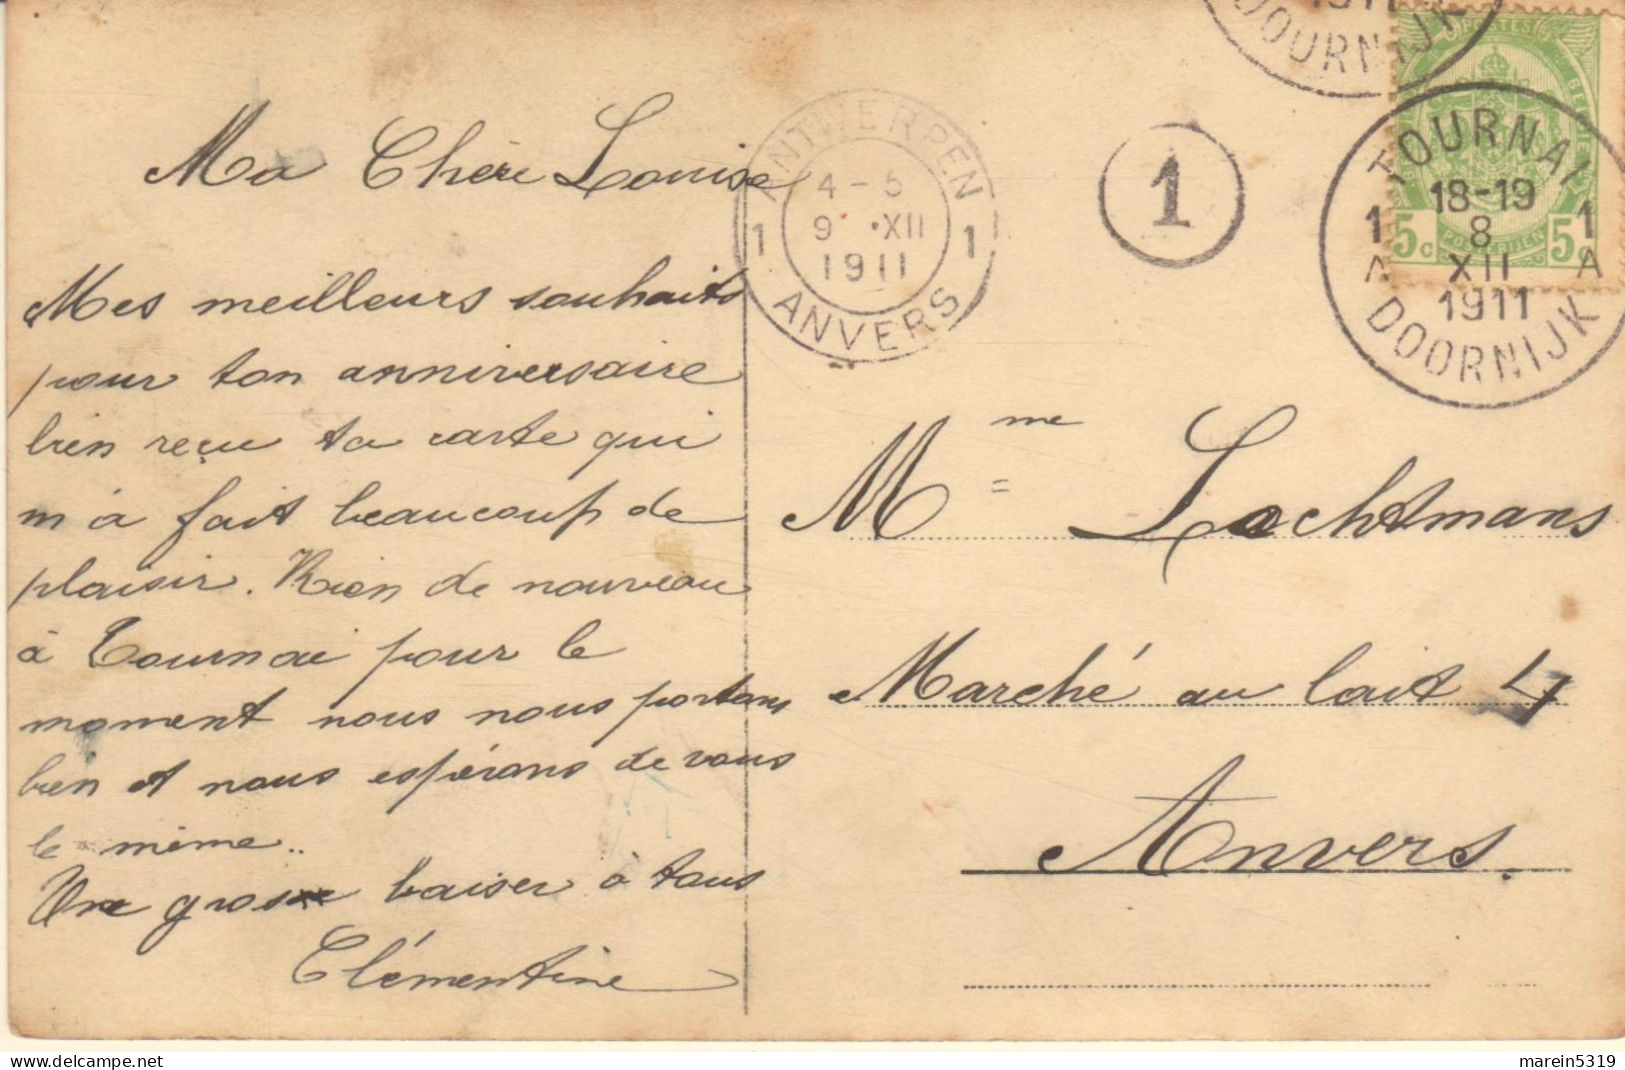 Ma Chère Louise
Mes meilleurs souhaits
pour ton anniversaire
bien reçu ta carte qui
m'a fait beaucoup de
plaisir. Rien de nouveau
à Tournai pour le
moment nous nous portons
bien et nous espérons de vous
le même..
Une grosse baiser à tous
Clémentine
ANTWERPEN
4-5
9 •XII
1911
1 1
ANVERS
1
DOORNIJK
POSTES
BELGIQUE
5c 5c
POSTERIJEN
TOURNAI
18-19
1 8 1
A XII A
1911
DOORNIJK
Mme Lochtmans
Marché au lait 4
Anvers.
marein5319